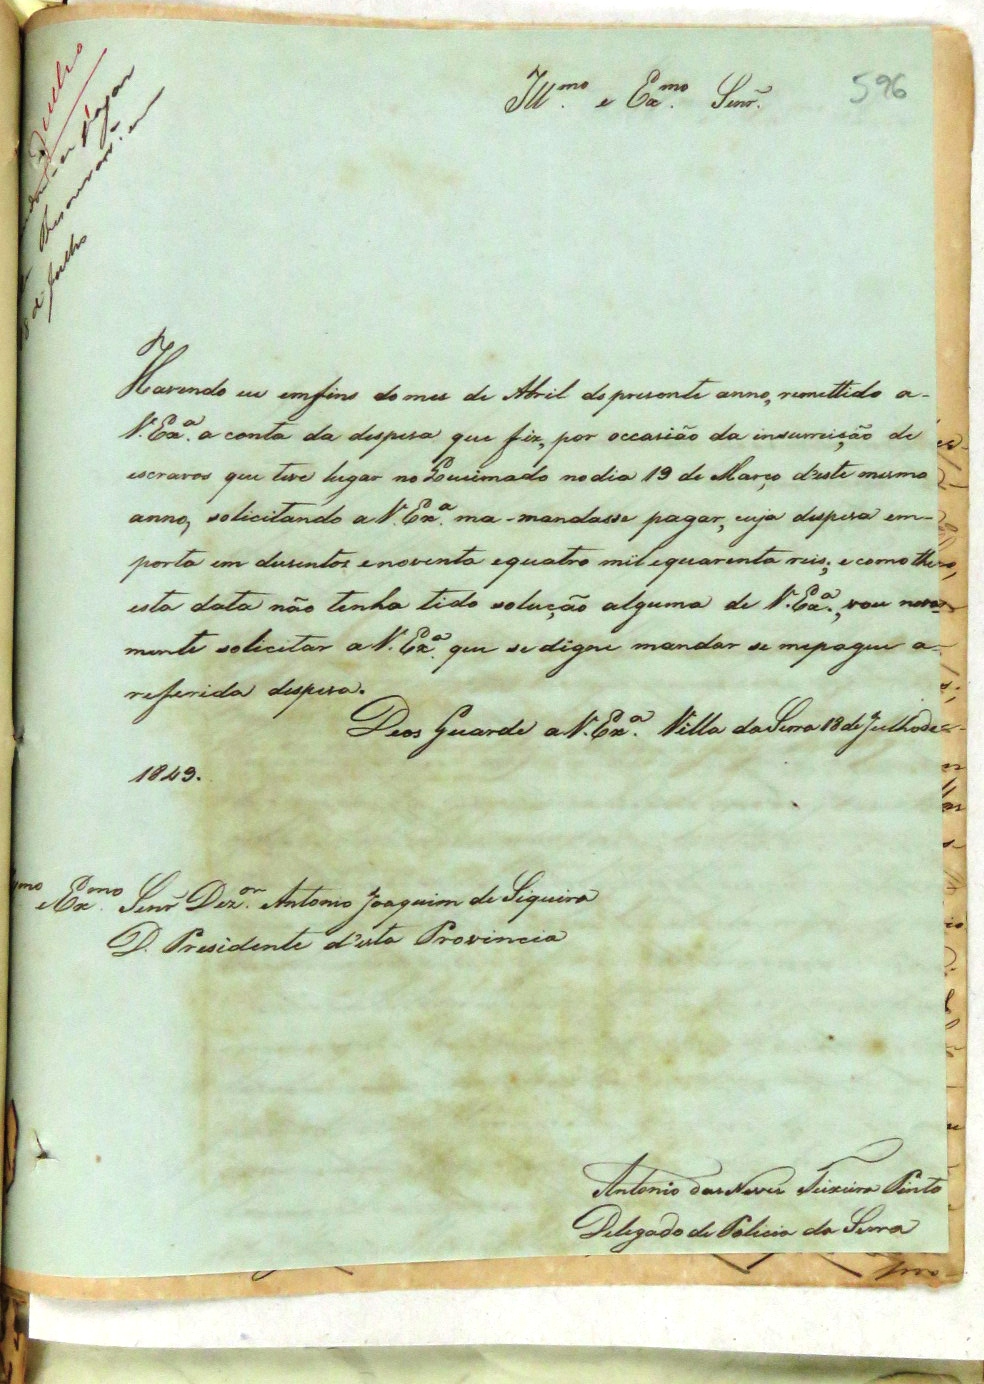 Ill.mo e Ex.mo Senr.
596
Havendo eu emfins do mes de Abril do presente anno, remettido a-
V. Ex.a a conta da despesa que fiz, por occasião da insurreição de
escravos que teve lugar no Queimado no dia 19 de Março d'este mesmo
anno, solicitando a V. Ex.a ma-mandasse pagar, cuja despesa em-
porta em dusentos e noventa e quatro mil e quarenta reis; e como the
esta data não tenha tido solução alguma de V. Ex.a, vou nova-
mente solicitar a V. Ex.a que se digne mandar se me pague a-
referida despesa.
Deos Guarde a V. Ex.a Villa da Serra 18 de Julho de
1849.
mo e Ex.mo Senr Dez.or Antonio Joaquim de Siqueira
D. Presidente d'esta Provincia
Antonio das Neves Teixeira Pinto
Delegado de Policia da Serra